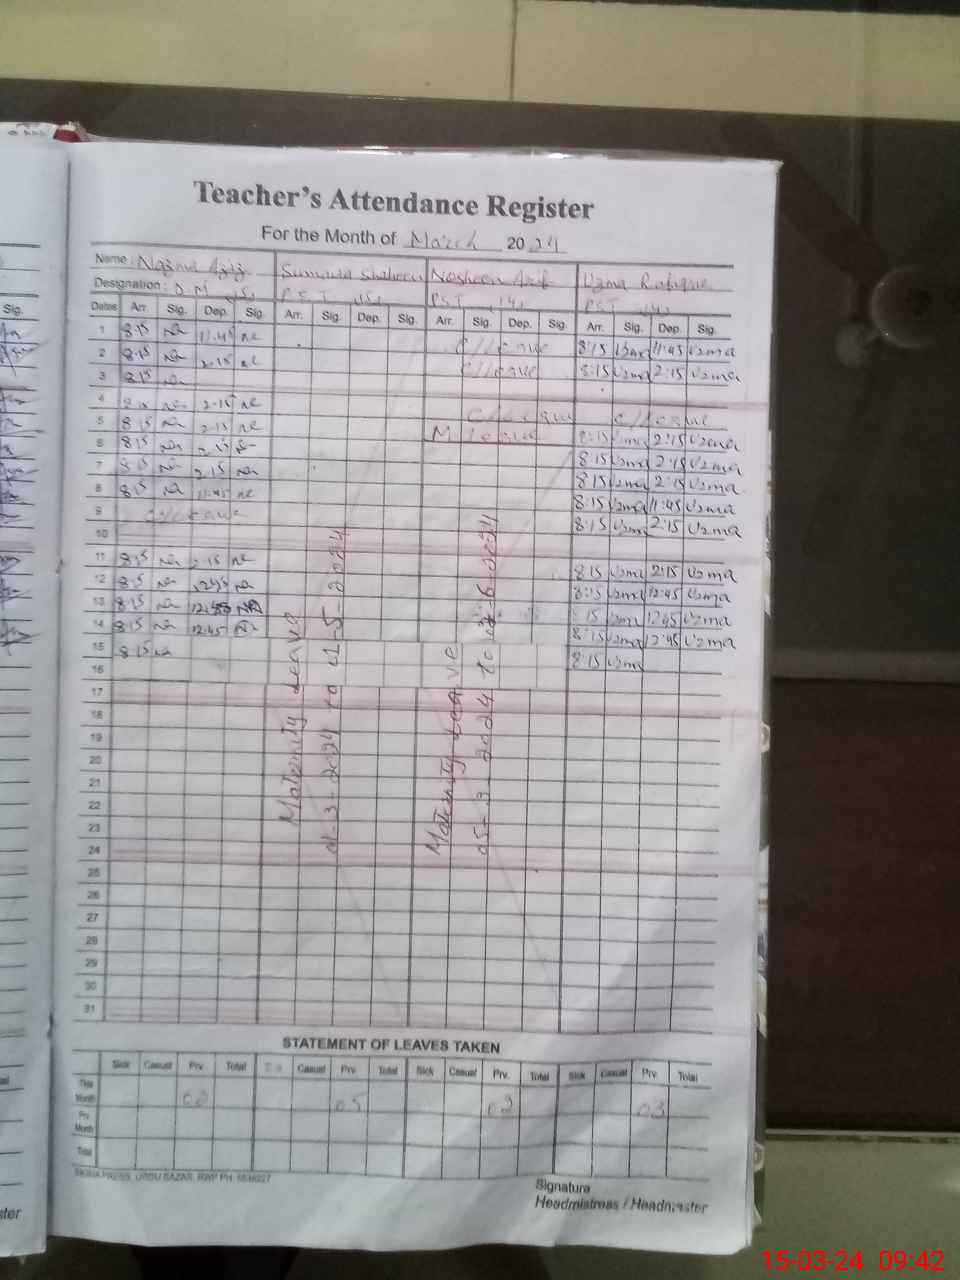 Teacher's Attendance Register
For the Month of March 2024
Name : Nazma Aziz Sumaira Shaheen Nosheen Uzma Rafique
Designation : PST PST PST
Dates Arr. Sig. Dep. Sig. Arr. Sig. Dep. Sig. Arr. Sig. Dep. Sig. Arr. Sig. Dep. Sig.
1 8:15 Na 11:45 C/leave 8:15 Uzma 11:45 Uzma
2 8:15 Na 2:15 C/leave 8:15 Uzma 2:15 Uzma
3 8:15 Na
4 8:15 Na 2:15 C/leave C/leave
5 8:15 Na 2:15 M leave 8:15 Uzma 2:15 Uzma
6 8:15 Na 2:15 8:15 Uzma 2:15 Uzma
7 8:15 Na 2:15 Na 8:15 Uzma 2:15 Uzma
8 8:15 Na 11:45 8:15 Uzma 11:45 Uzma
9 C/leave 8:15 Uzma 2:15 Uzma
10
11 8:15 Na 2:15 8:15 Uzma 2:15 Uzma
12 8:15 Na Na 8:15 Uzma 12:45 Uzma
13 8:15 Na 12:45 Na 8:15 Uzma 12:45 Uzma
14 8:15 Na 12:45 Na 8:15 Uzma 12:45 Uzma
15 8:15 Na 8:15 Uzma
16
17
18
19
20
21
22
23
24
25
26
27
28
29
30
31
Maternity Leave
01-3-2024 to 01-5-2024
Maternity Leave
05-3-2024 to 6-2024
STATEMENT OF LEAVES TAKEN
Sick Casual Prv. Total Casual Prv. Total Sick Casual Prv. Total Sick Casual Prv. Total
This Month 02 05 02 03
Prv. Month
Total
URDU BAZAR, RWP PH
Signature
Headmistress / Headmaster
Sig.
ster
15-03-24 09:42